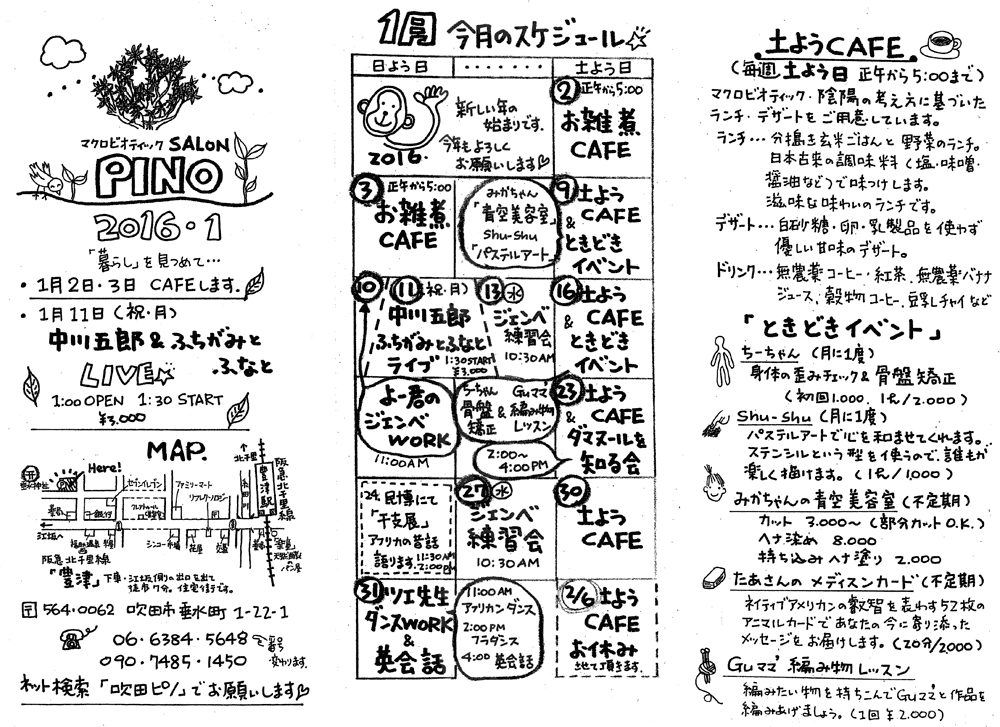 マクロビオティック SALON
PINO
2016・1
「暮らし」を見つめて…
・1月2日・3日 CAFEします。
・1月11日(祝・月)
中川五郎 & ふちがみと
・ふなと
LIVE☆
1:00 OPEN 1:30 START
¥3,000
MAP.
Here!
北千里
阪急北千里線
豊津駅
セブンイレブン
ファミリーマート
江坂へ
阪急北千里線
「豊津」下車・江坂側の出口を出て
徒歩7分。住宅街です。
〒564・0062 吹田市垂水町 1-22-1
06・6384・5648
090・7485・1450
番号変わります。
ネット検索「吹田ピノ」でお願いします♡
1月 今月のスケジュール☆
日よう日 ・・・・・・・ 土よう日
2016・
新しい年の
始まりです。
今年もよろしく
お願いします♡
② 正午から5:00
お雑煮
CAFE
③ 正午から5:00
お雑煮
CAFE
みかちゃん
「青空美容室」
Shu-Shu
「パステルアート」
⑨ 土よう
CAFE
&
ときどき
イベント
⑩ ⑪(祝・月)
中川五郎
ふちがみとふなと
ライブ 1:30 START
¥3,000
⑬ ㊌
ジェンベ
練習会
10:30AM
⑯ 土よう
CAFE
&
ときどき
イベント
よー君の
ジェンベ
WORK
11:00AM
ちーちゃん
骨盤
矯正
&
Guママ
編み物
レッスン
2:00〜
4:00PM
㉓ 土よう
CAFE
&
ダマヌールを
知る会
24. 民博にて
「干支展」
アフリカの昔話
語ります。11:30AM
2:00PM
㉗ ㊌
ジェンベ
練習会
10:30AM
㉚
土よう
CAFE
㉛ ツエ先生
ダンスWORK
&
英会話
11:00AM
アフリカンダンス
2:00PM
フラダンス
4:00 英会話
2/6 土よう
CAFE
お休み
させて頂きます。
土ようCAFE
(毎週 土よう日 正午から5:00まで)
マクロビオティック・陰陽の考え方に基づいた
ランチ・デザートをご用意しています。
ランチ…分搗き玄米ごはんと野菜のランチ。
日本古来の調味料(塩・味噌・
醤油など)で味つけします。
滋味な味わいのランチです。
デザート…白砂糖・卵・乳製品を使わず
優しい甘味のデザート。
ドリンク…無農薬コーヒー・紅茶、無農薬バナナ
ジュース、穀物コーヒー、豆乳チャイなど
「ときどきイベント」
ちーちゃん(月に1度)
身体の歪みチェック & 骨盤矯正
(初回1,000、1h/2,000)
Shu-Shu(月に1度)
パステルアートで心を和ませてくれます。
ステンシルという型を使うので、誰もが
楽しく描けます。(1h/1,000)
みかちゃんの青空美容室(不定期)
カット 3,000〜(部分カットO.K.)
ヘナ染め 8,000
持ち込みヘナ塗り 2,000
たあさんのメディスンカード(不定期)
ネイティブアメリカンの叡智を表わす52枚の
アニマルカードであなたの今に寄り添った
メッセージをお届けします。(20分/2000)
Guママ 編み物レッスン
編みたい物を持ちこんでGuママと作品を
編みあげましょう。(1回 ¥2,000)